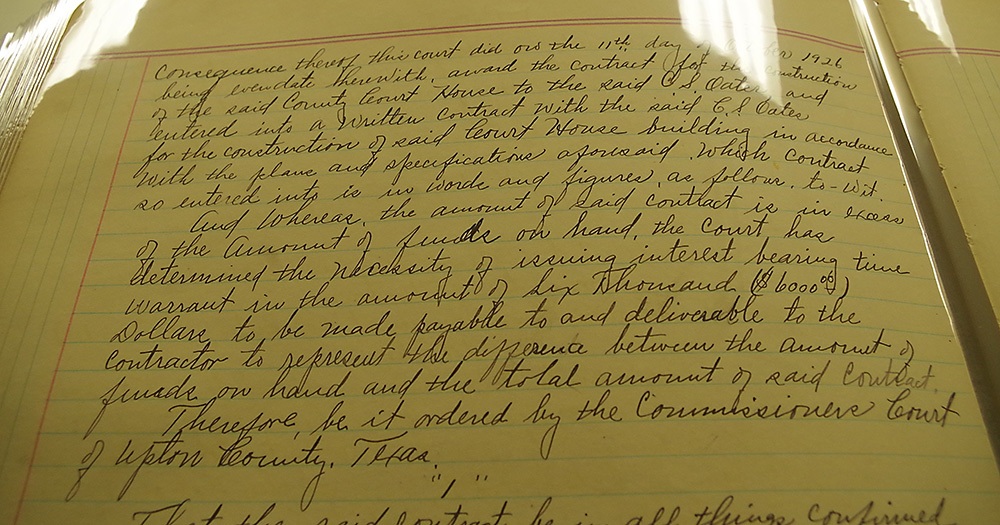 Consequence thereof this court did on the 11th day of 1926
being even date therewith, award the contract for the construction
of the said County Court House to the said C.S. Oates and
entered into a Written contract with the said C.S. Oates
for the construction of said Court House building in accordance
with the plans and specifications aforesaid. Which contract
so entered into is in words and figures, as follow, to-wit.
And Whereas, the amount of said contract is in excess
of the Amount of funds on hand, the Court has
determined the necessity of issuing interest bearing time
warrant in the amount of Six Thousand ($6000 00)
Dollars to be made payable to and deliverable to the
contractor to represent the difference between the amount of
funds on hand and the total amount of said contract.
Therefore, be it ordered by the Commissioners Court
of Upton County, Texas.
"1"
That the said contract be in all things confirmed